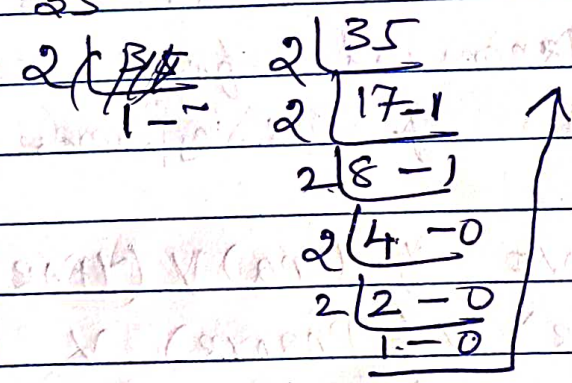 2 35
2 17-1
2 8-1
2 4-0
2 2-0
1-0